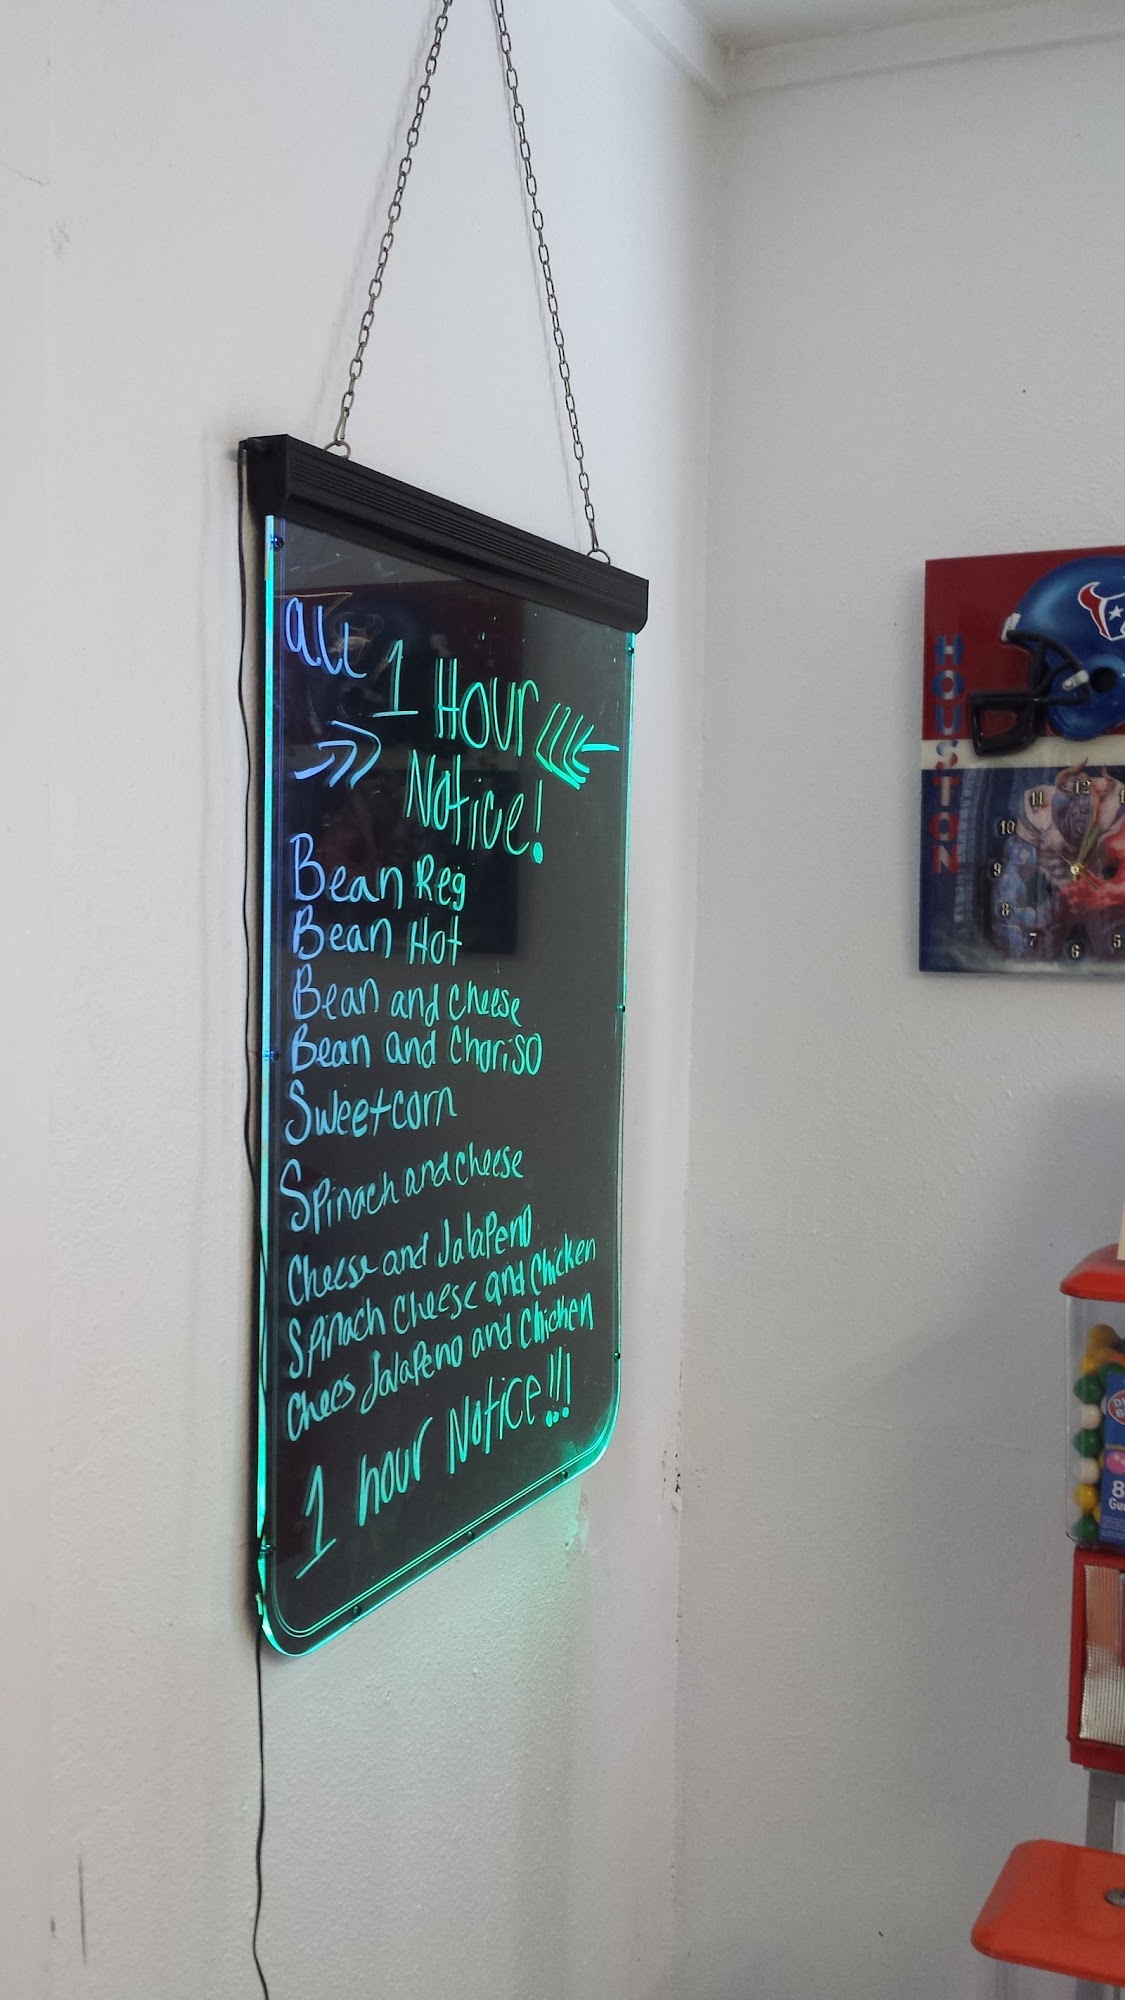 all 1 Hour
Notice!
Bean Reg
Bean Hot
Bean and Cheese
Bean and Choriso
Sweetcorn
Spinach and cheese
Cheese and Jalapeno
Spinach Cheese and Chicken
Chees Jalapeno and Chicken
1 hour Notice!!!
HOUSTON
11 12
10
9
8
7 6 5
8